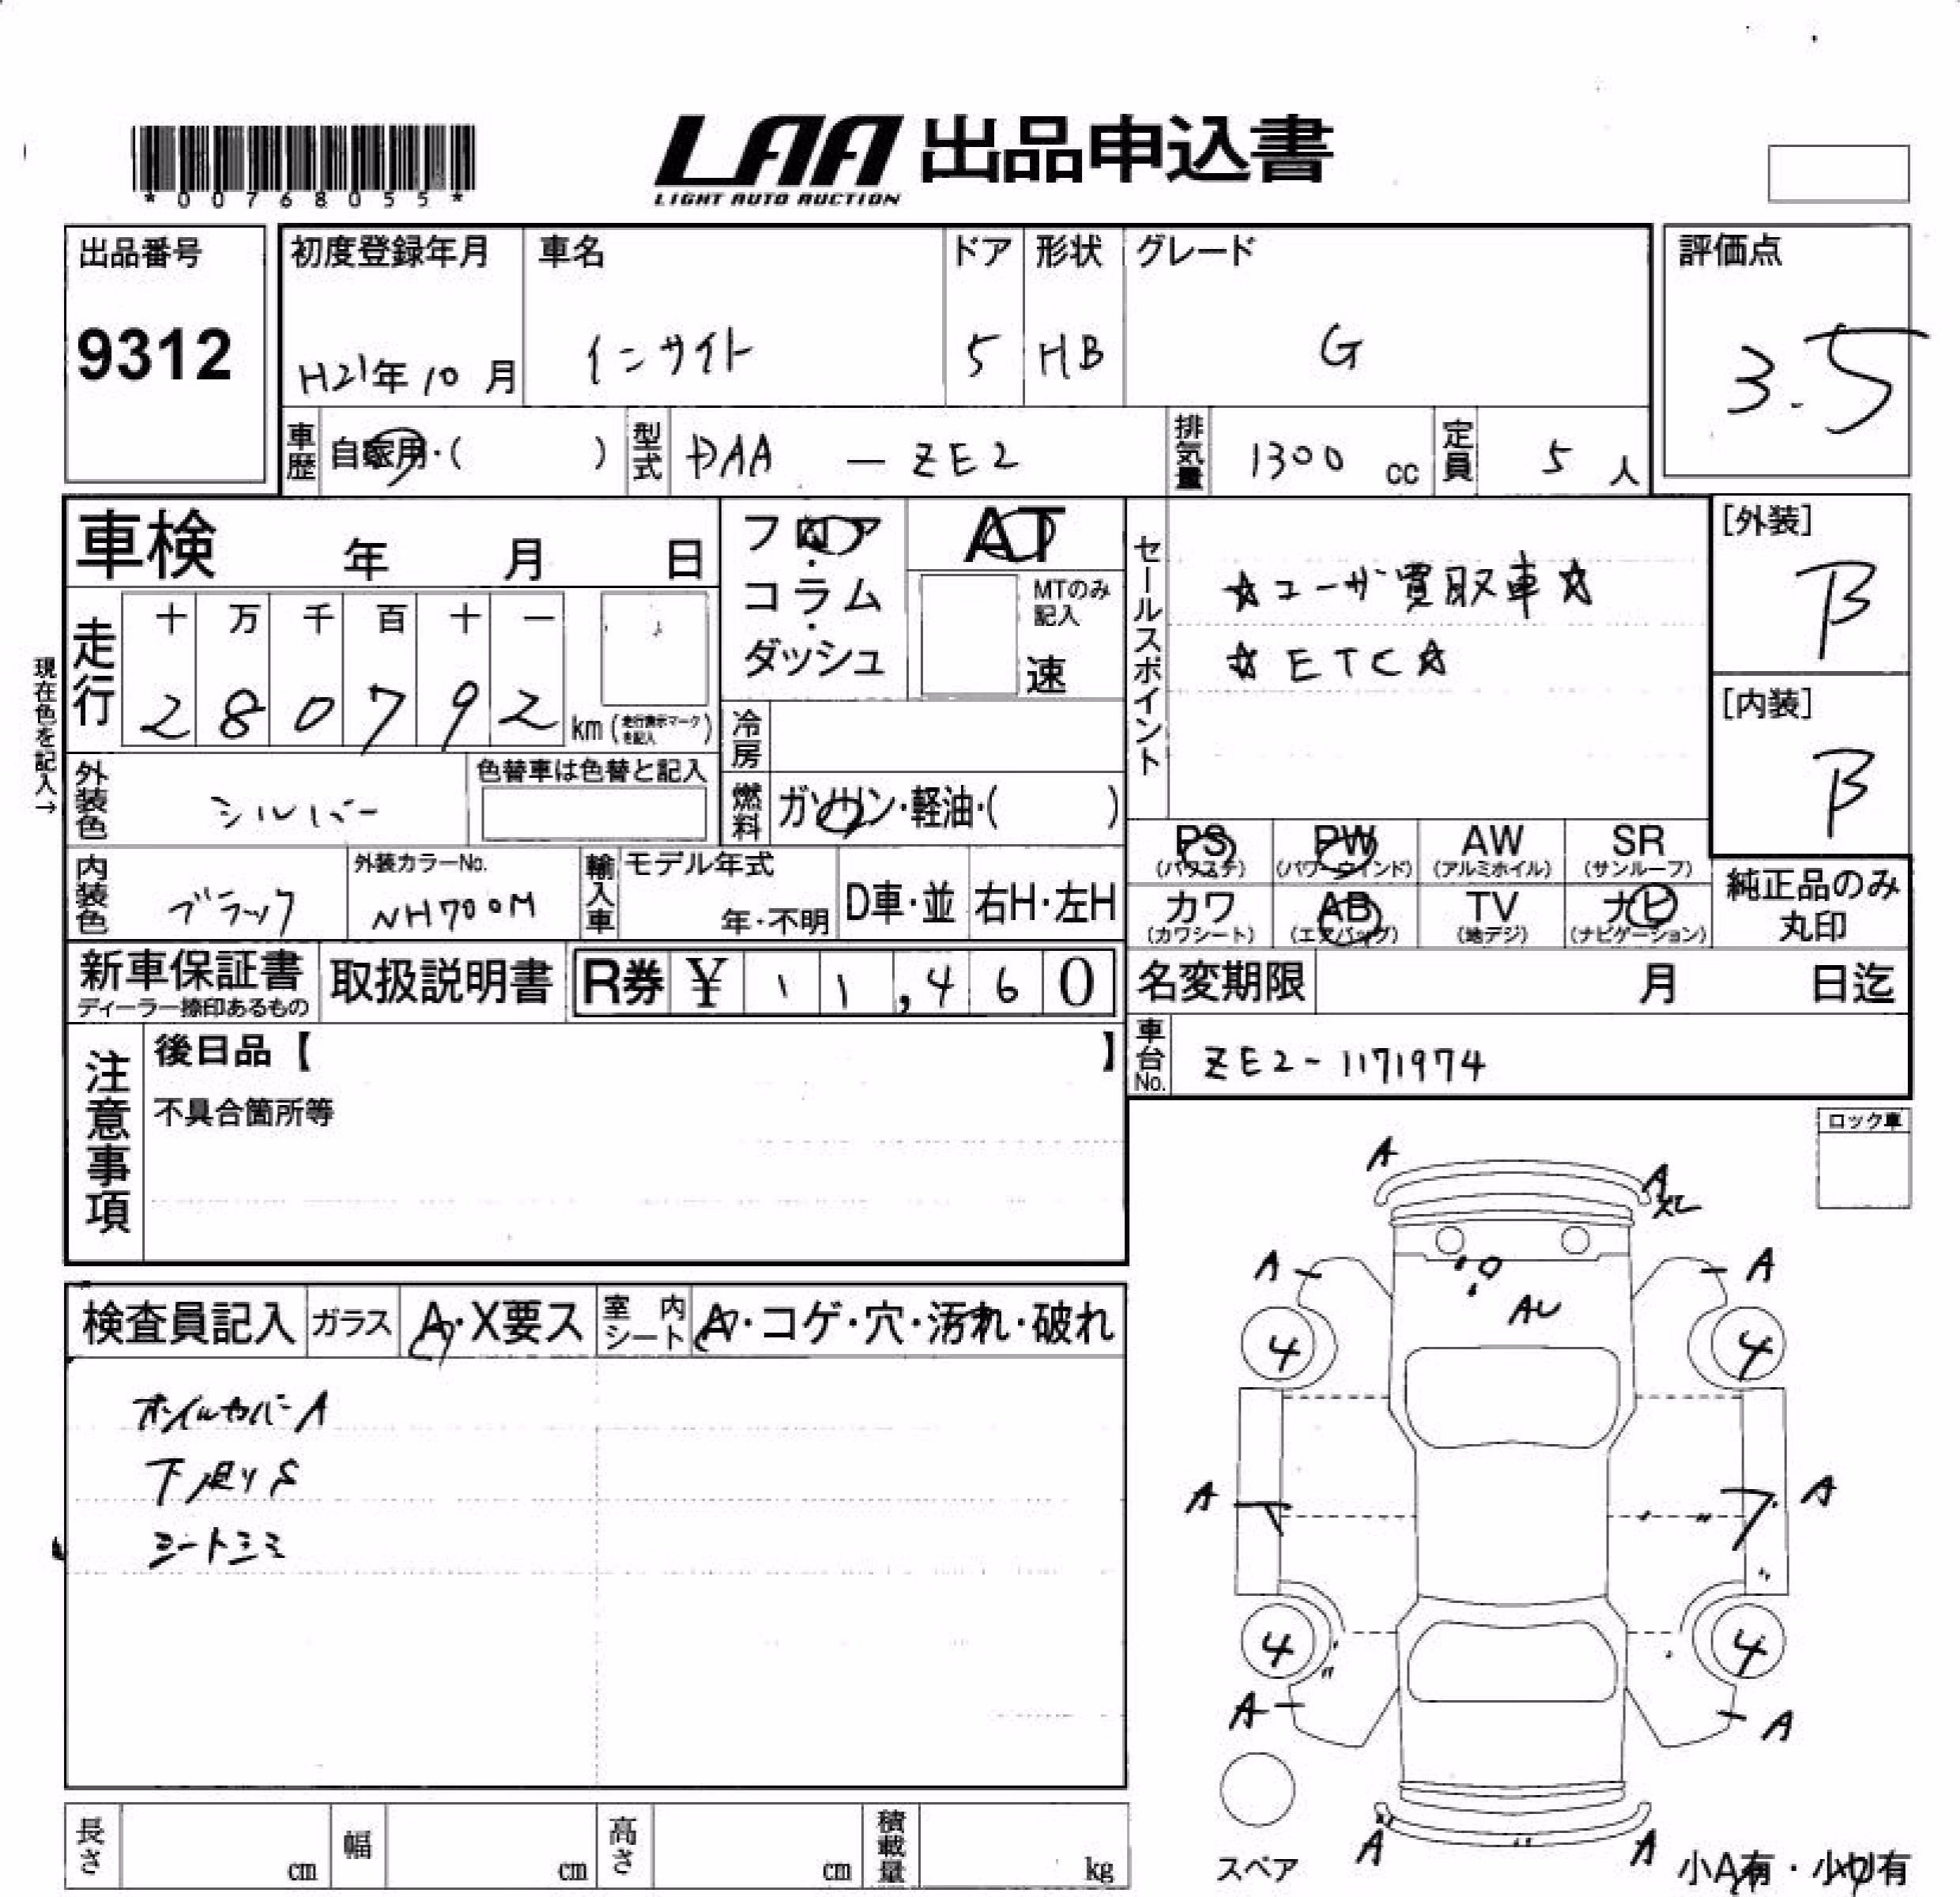 *00768055*
LAA 出品申込書
LIGHT AUTO AUCTION
出品番号
9312
初度登録年月
H21年10月
車名
インサイト
ドア
5
形状
HB
グレード
G
評価点
3.5
車歴
自家用・( )
型式
DAA — ZE2
排気量
1300 cc
定員
5 人
車検 年 月 日
フロア・コラム・ダッシュ
AT
MTのみ記入
速
セールスポイント
☆ユーザ買取車☆
☆ETC☆
[外装]
B
[内装]
B
現在色を記入→
走行
十 万 千 百 十 一
2 8 0 7 9 2 km (走行表示マークを記入)
冷房
外装色
シルバー
色替車は色替と記入
燃料
ガソリン・軽油・( )
PS (パワステ)
PW (パワーウィンド)
AW (アルミホイル)
SR (サンルーフ)
カワ (カワシート)
AB (エアバッグ)
TV (地デジ)
ナビ (ナビゲーション)
純正品のみ丸印
内装色
ブラック
外装カラーNo.
NH700M
輸入車
モデル年式
年・不明
D車・並
右H・左H
新車保証書
ディーラー捺印あるもの
取扱説明書
R券 ¥ 11,460
名変期限 月 日迄
車台No.
ZE2-1171974
注意事項
後日品【 】
不具合箇所等
ロック車
検査員記入
ガラス
A・X要ス
室内シート
A・コゲ・穴・汚れ・破れ
ホイルカバーA
下廻りS
シートシミ
A
A
A
A
AU
4
4
A
A
4
4
A
A
A
A
スペア
小A有・小U有
長さ cm
幅 cm
高さ cm
積載量 kg